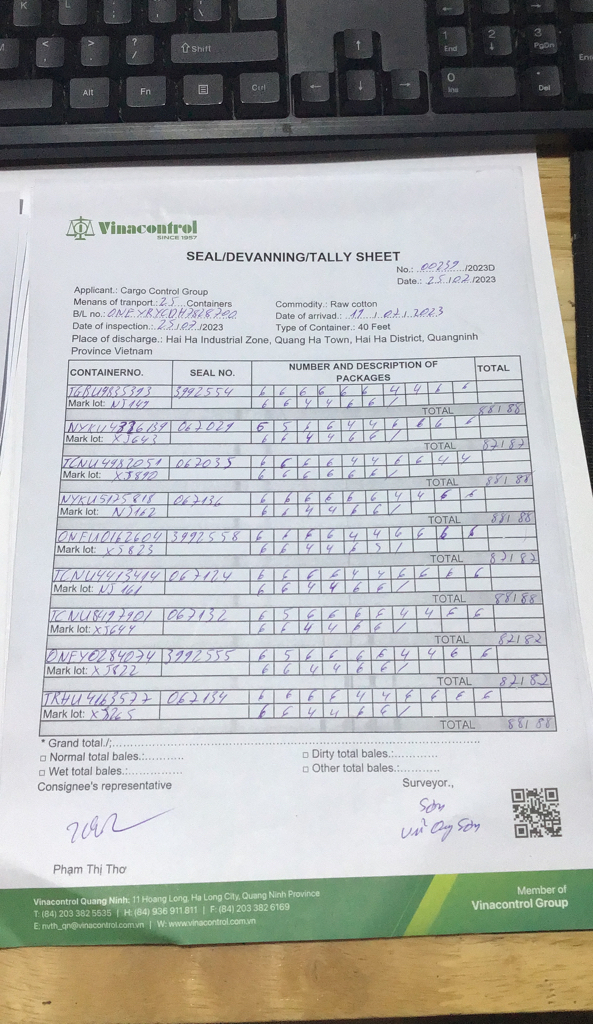 K
L
M
<
,
>
.
?
/
Shift
Alt
Fn
Ctrl
↑
←
↓
→
1
End
2
↓
3
PgDn
0
Ins
.
Del
Vinacontrol
SINCE 1957
SEAL/DEVANNING/TALLY SHEET
No.: 00239 /2023D
Date.: 25/07/2023
Applicant.: Cargo Control Group
Menans of tranport.: 25 Containers
Commodity.: Raw cotton
B/L no.:
Date of arrivad.: 19/07/2023
Date of inspection.: 25/07/2023
Type of Container.: 40 Feet
Place of discharge.: Hai Ha Industrial Zone, Quang Ha Town, Hai Ha District, Quangninh
Province Vietnam
CONTAINERNO. SEAL NO. NUMBER AND DESCRIPTION OF PACKAGES TOTAL
3992554 6 6 6 6 6 6 4 4 6 6
Mark lot: NJ149 6 6 4 4 6 6 /
TOTAL 88/88
067029 6 5 6 6 4 4 6 6 6 6
Mark lot: XJ643 6 6 4 4 6 6 /
TOTAL 87/87
TCNU4982051 067035 6 6 6 6 4 4 6 6 4 4
Mark lot: 6 6 6 6 6 6 /
TOTAL 88/88
NYKU5175818 067136 6 6 6 6 6 6 4 4 6 6
Mark lot: NJ162 6 6 4 4 6 6 /
TOTAL 88/88
ONEU0162604 3992558 6 6 6 6 4 4 6 6 6 6
Mark lot: XJ823 6 6 4 4 6 5 /
TOTAL 87/87
TCNU4413414 067124 6 6 6 6 4 4 6 6 6 6
Mark lot: NJ161 6 6 4 4 6 6 /
TOTAL 88/88
TCNU8497901 067132 6 5 6 6 6 6 4 4 6 6
Mark lot: XJ644 6 6 4 4 6 6 /
TOTAL 87/87
ONEY0284074 3992555 6 5 6 6 6 6 4 4 6 6
Mark lot: XJ822 6 6 4 4 6 6 /
TOTAL 87/87
TRHU4163577 067134 6 6 6 6 4 4 6 6 6 6
Mark lot: 6 6 4 4 6 6 /
TOTAL 88/88
* Grand total./;
□ Normal total bales.:
□ Dirty total bales.:
□ Wet total bales.:
□ Other total bales.:
Consignee's representative
Surveyor.,
Sơn
Sơn
Phạm Thị Thơ
Vinacontrol Quang Ninh: 11 Hoang Long, Ha Long City, Quang Ninh Province
T: (84) 203 382 5535 | H: (84) 936 911.811 | F: (84) 203 382 6169
E: nvth_qn@vinacontrol.com.vn | W: www.vinacontrol.com.vn
Member of
Vinacontrol Group